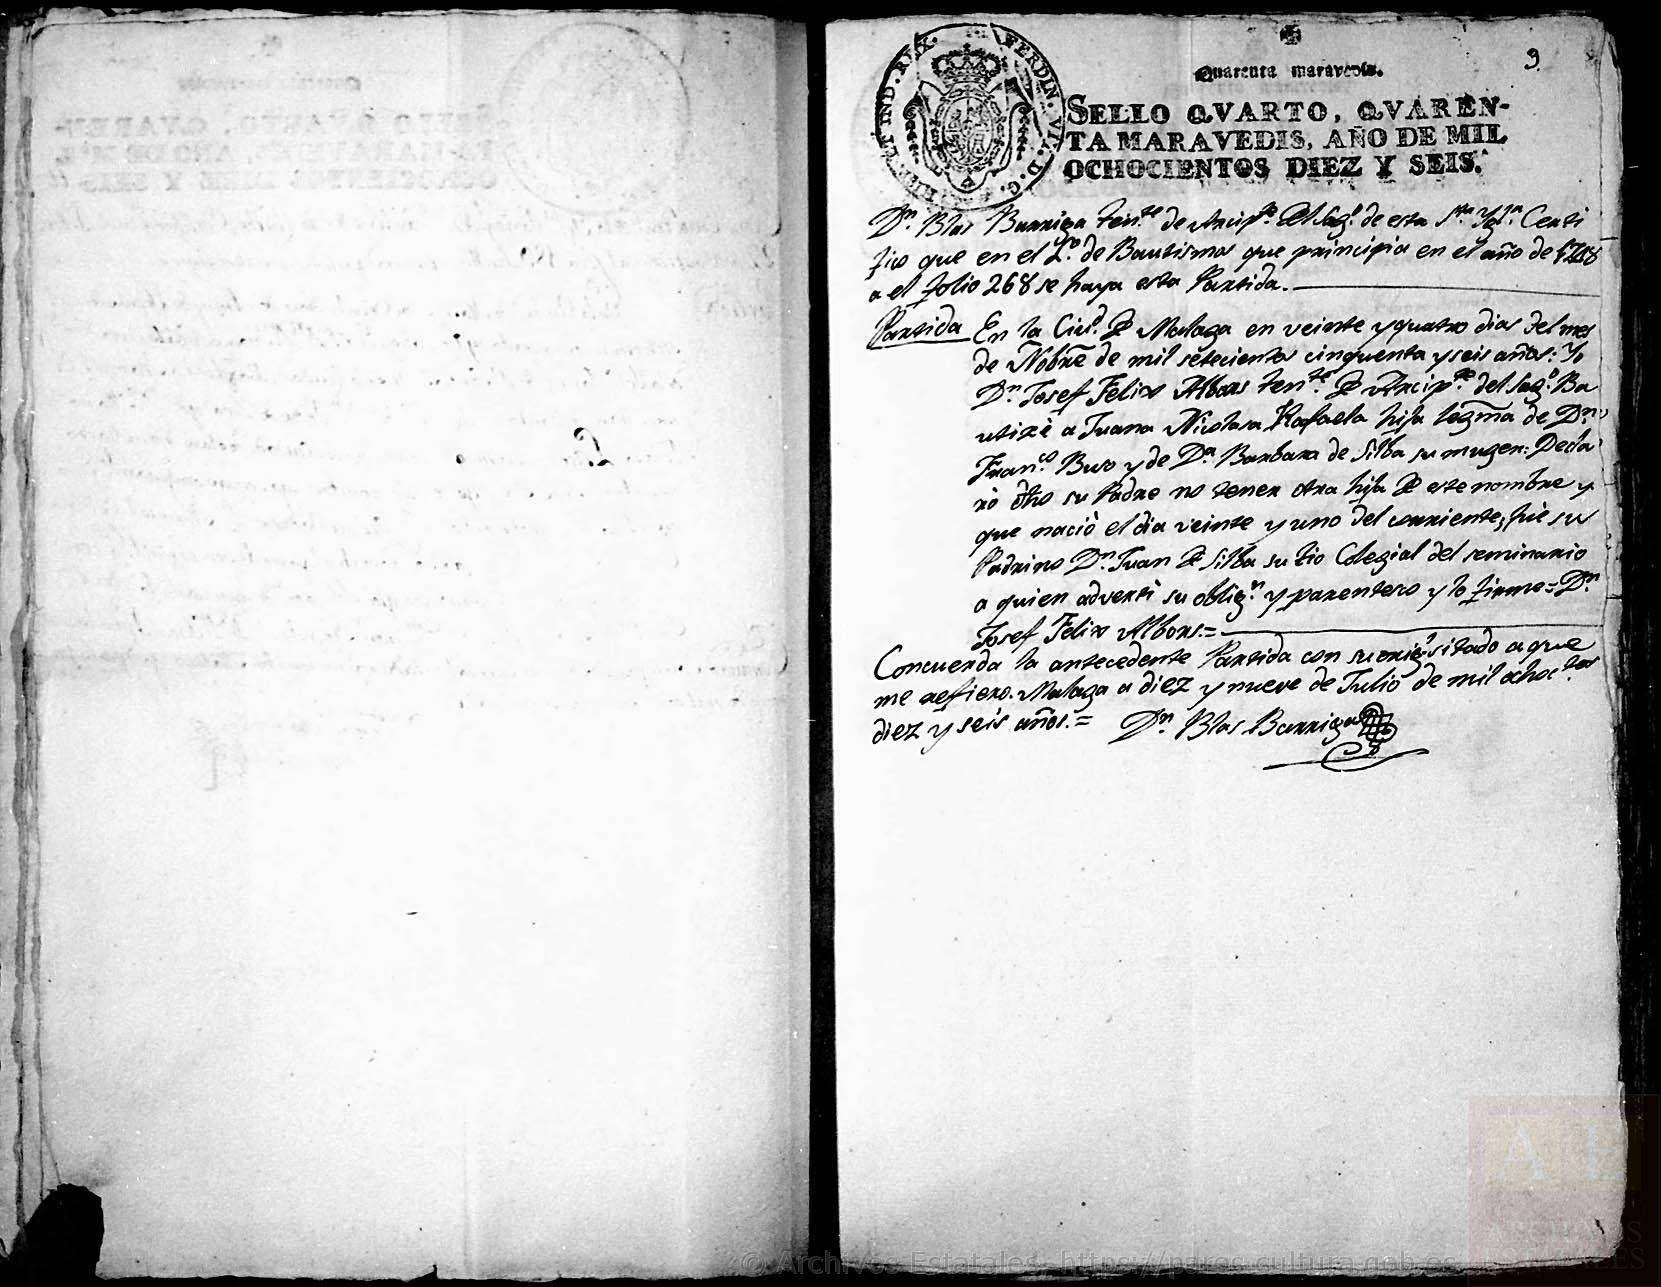 9
Quarenta maravedis.
SELLO QVARTO, QVAREN-
TA MARAVEDIS, AÑO DE MIL
OCHOCIENTOS DIEZ Y SEIS.
FERDIN. VII. D. G. HISPAN. ET IND. REX.
Dn. Blas Barriga tente. de Arcipte. del Sago. de esta Sta. Yga. Certi
fico que en el Lo. de Bautismos que principia en el año de 1748
a el folio 268 se haya esta Partida.
Partida En la Ciud. de Malaga en veinte y quatro dias del mes
de Nobre de mil setecientos cinquenta y seis años: Yo
Dn. Josef Felix Albors tente. de Arcipte. del Sago. Ba
utizè a Juana Nicolasa Rafaela hija legma de Dn.
Frano. Buro y de Da. Barbara de Silba su muger: Decla
rò dho su Padre no tener otra hija de este nombre y
que naciò el dia veinte y uno del corriente, fuè su
Padrino Dn. Juan de Silba su tio Colegial del seminario
a quien advertì su obligon. y parentesco y lo firme = Dn.
Josef Felix Albors. =
Concuerda la antecedente Partida con su origl. sitado a que
me refiero. Malaga a diez y nueve de Julio de mil ochoctos.
diez y seis años. = Dn. Blas Barriga
© Archivos Estatales, https://pares.cultura.gob.es